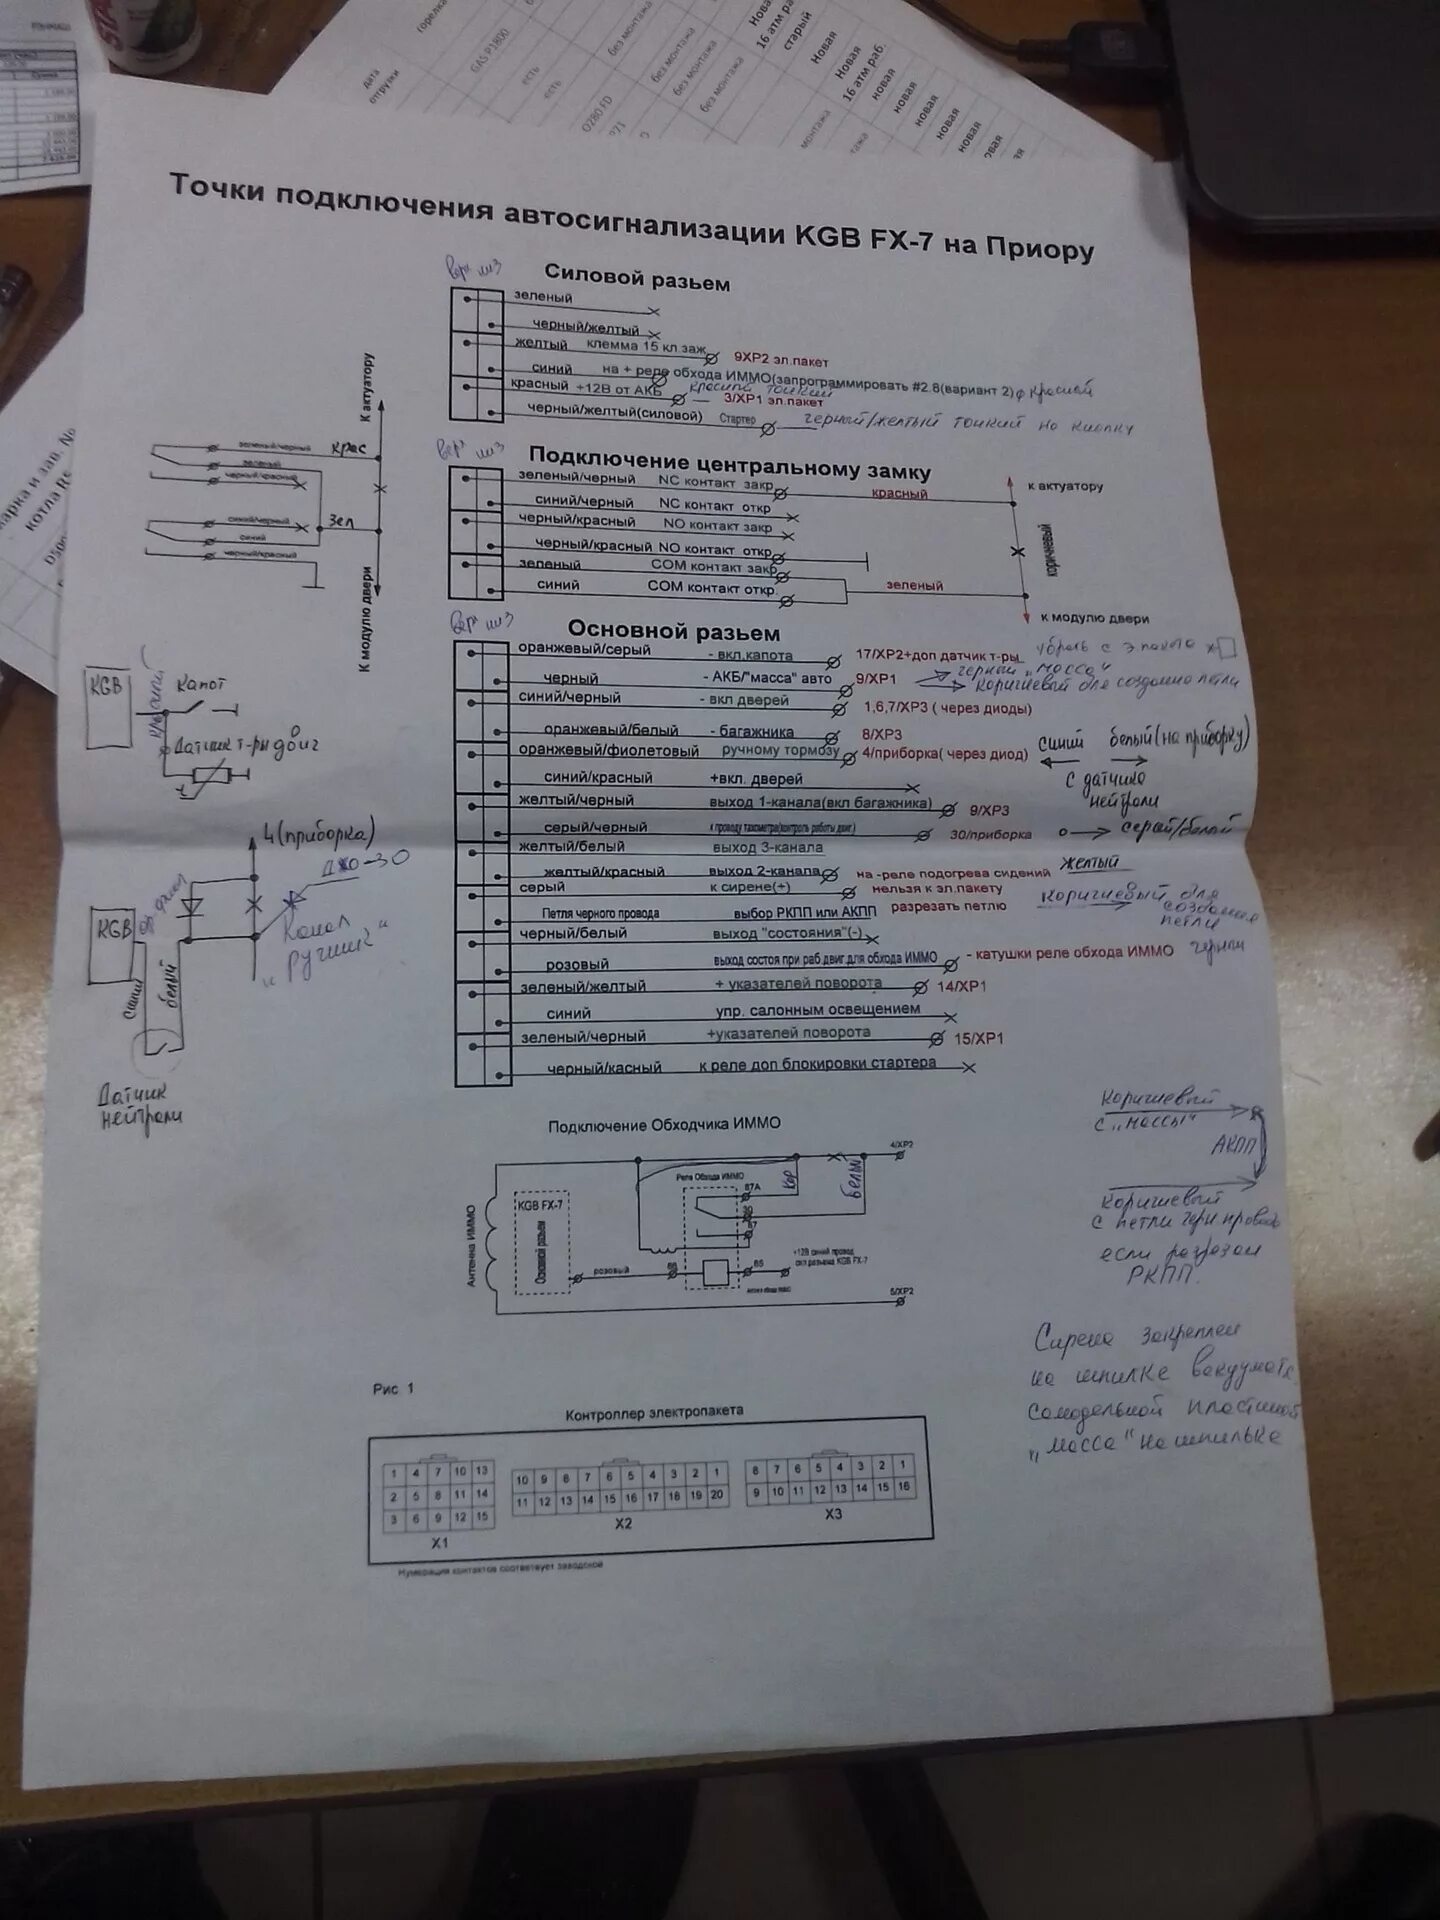 горелка
GAS P1800
дата
отгрузки
есть
есть
без монтажа
без монтажа
без монтажа
Новая
16 атм ра
старый
Новая
Новая
16 атм раб.
новая
новая
новая
новая
Точки подключения автосигнализации KGB FX-7 на Приору
верх низ
Силовой разьем
зеленый
черный/желтый
желтый клемма 15 кл заж 9ХР2 эл.пакет
синий на + реле обхода ИММО(запрограммировать #2.8(вариант 2) красной
красный +12В от АКБ 3/ХР1 эл.пакет
черный/желтый(силовой) Стартер черный/желтый тонкий на кнопку
К актуатору
зеленый/черный крас
зеленый
черный/красный
синий/черный зел
синий
черный/красный
К модулю двери
верх низ
Подключение центральному замку
зеленый/черный NC контакт закр красный к актуатору
синий/черный NC контакт откр
черный/красный NO контакт закр
черный/красный NO контакт откр коричневый
зеленый COM контакт закр зеленый
синий COM контакт откр.
к модулю двери
верх низ
Основной разьем
оранжевый/серый - вкл.капота 17/ХР2+доп датчик т-ры убрать с эл пакета
черный - АКБ/"масса" авто 9/ХР1 черный "масса"
коричневый для создания петли
синий/черный - вкл дверей 1,6,7/ХР3 ( через диоды)
оранжевый/белый - багажника 8/ХР3
оранжевый/фиолетовый ручному тормозу 4/приборка( через диод) синий белый(на приборку)
с датчика нейтрали
синий/красный +вкл. дверей
желтый/черный выход 1-канала(вкл багажника) 9/ХР3
серый/черный к проводу тахометра(контроль работы двиг) 30/приборка серый/белый
желтый/белый выход 3-канала
желтый/красный выход 2-канала на -реле подогрева сидений желтый
серый к сирене(+) нельзя к эл.пакету
Петля черного провода выбор РКПП или АКПП разрезать петлю коричневый для создания петли
черный/белый выход "состояния"(-)
розовый выход состоя при раб двиг.для обхода ИММО - катушки реле обхода ИММО черный
зеленый/желтый + указателей поворота 14/ХР1
синий упр. салонным освещением
зеленый/черный +указателей поворота 15/ХР1
черный/касный к реле доп блокировки стартера
KGB
капот
Датчик т-ры двиг
4(приборка)
KGB
синий
белый
канал
"ручник"
Датчик
нейтрали
Подключение Обходчика ИММО
4/ХР2
Реле Обхода ИММО
87А
кор
белый
Антенна ИММО
KGB FX-7
Основной разьем
розовый
86
85
+12В синий провод
сил разьема KGB FX-7
5/ХР2
коричневый
с "массы"
АКПП
коричневый
с петли черн.провода
если разрезан
РКПП.
Сирена закреплен
на шпилке вакуумот.
самодельной пластиной
"масса" на шпильке
Рис. 1
Контроллер электропакета
1 4 7 10 13
2 5 8 11 14
3 6 9 12 15
X1
10 9 8 7 6 5 4 3 2 1
11 12 13 14 15 16 17 18 19 20
X2
8 7 6 5 4 3 2 1
9 10 11 12 13 14 15 16
X3
Нумерация контактов соответствует заводской